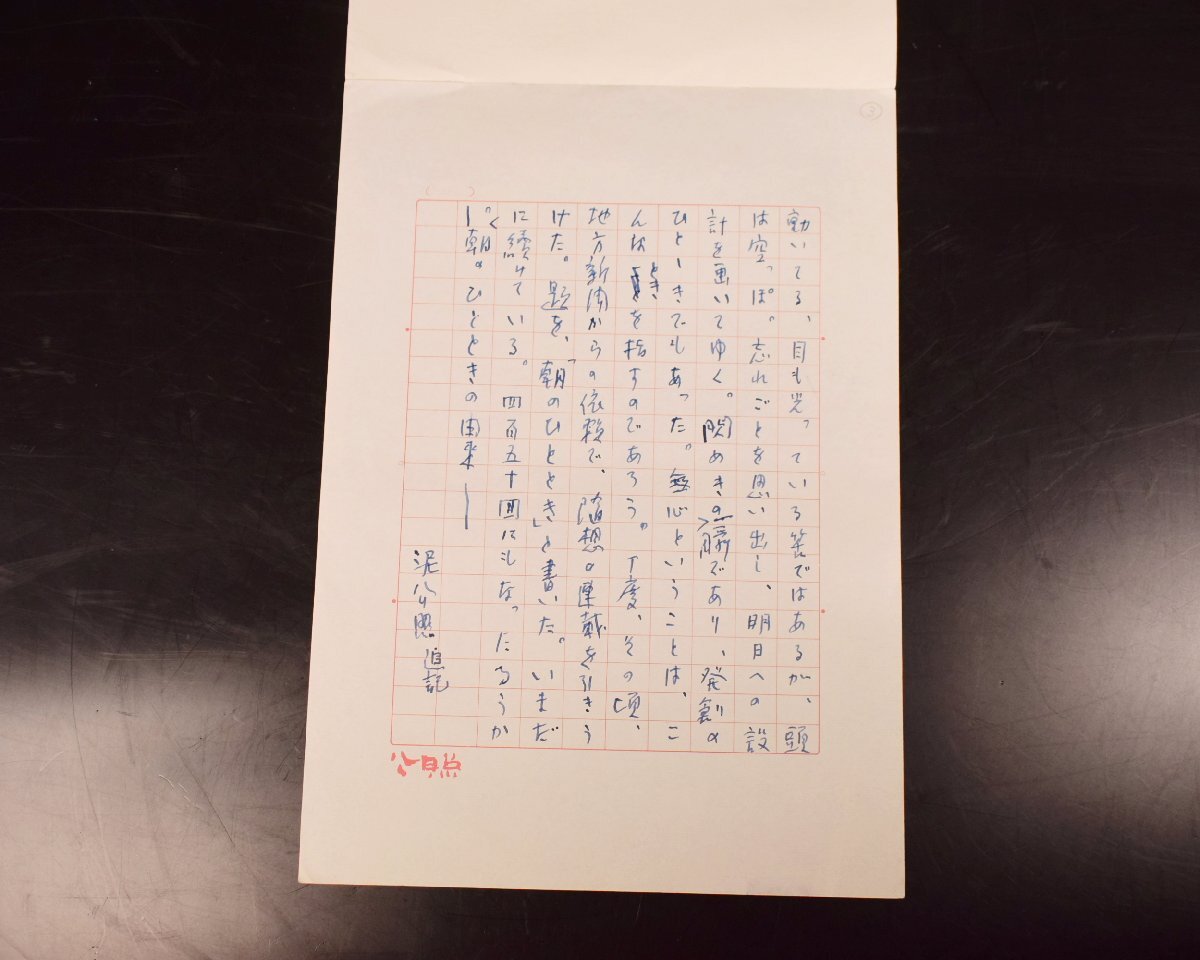 ③
動いてる、目も光っている筈ではあるが、頭
は空っぽ。忘れごとを思い出し、明日への設
計を画いてゆく。閃めきの一瞬であり、発創の
ひとときでもあった。無心ということは、こ
んなときを指すのであろう。丁度、その頃、
地方新聞からの依頼で、随想の連載を引きう
けた。題を、「朝のひととき」と書いた。いまだ
に続けている。四百五十回にもなったろうか
―〝朝のひとときの由来―
泥公照追記